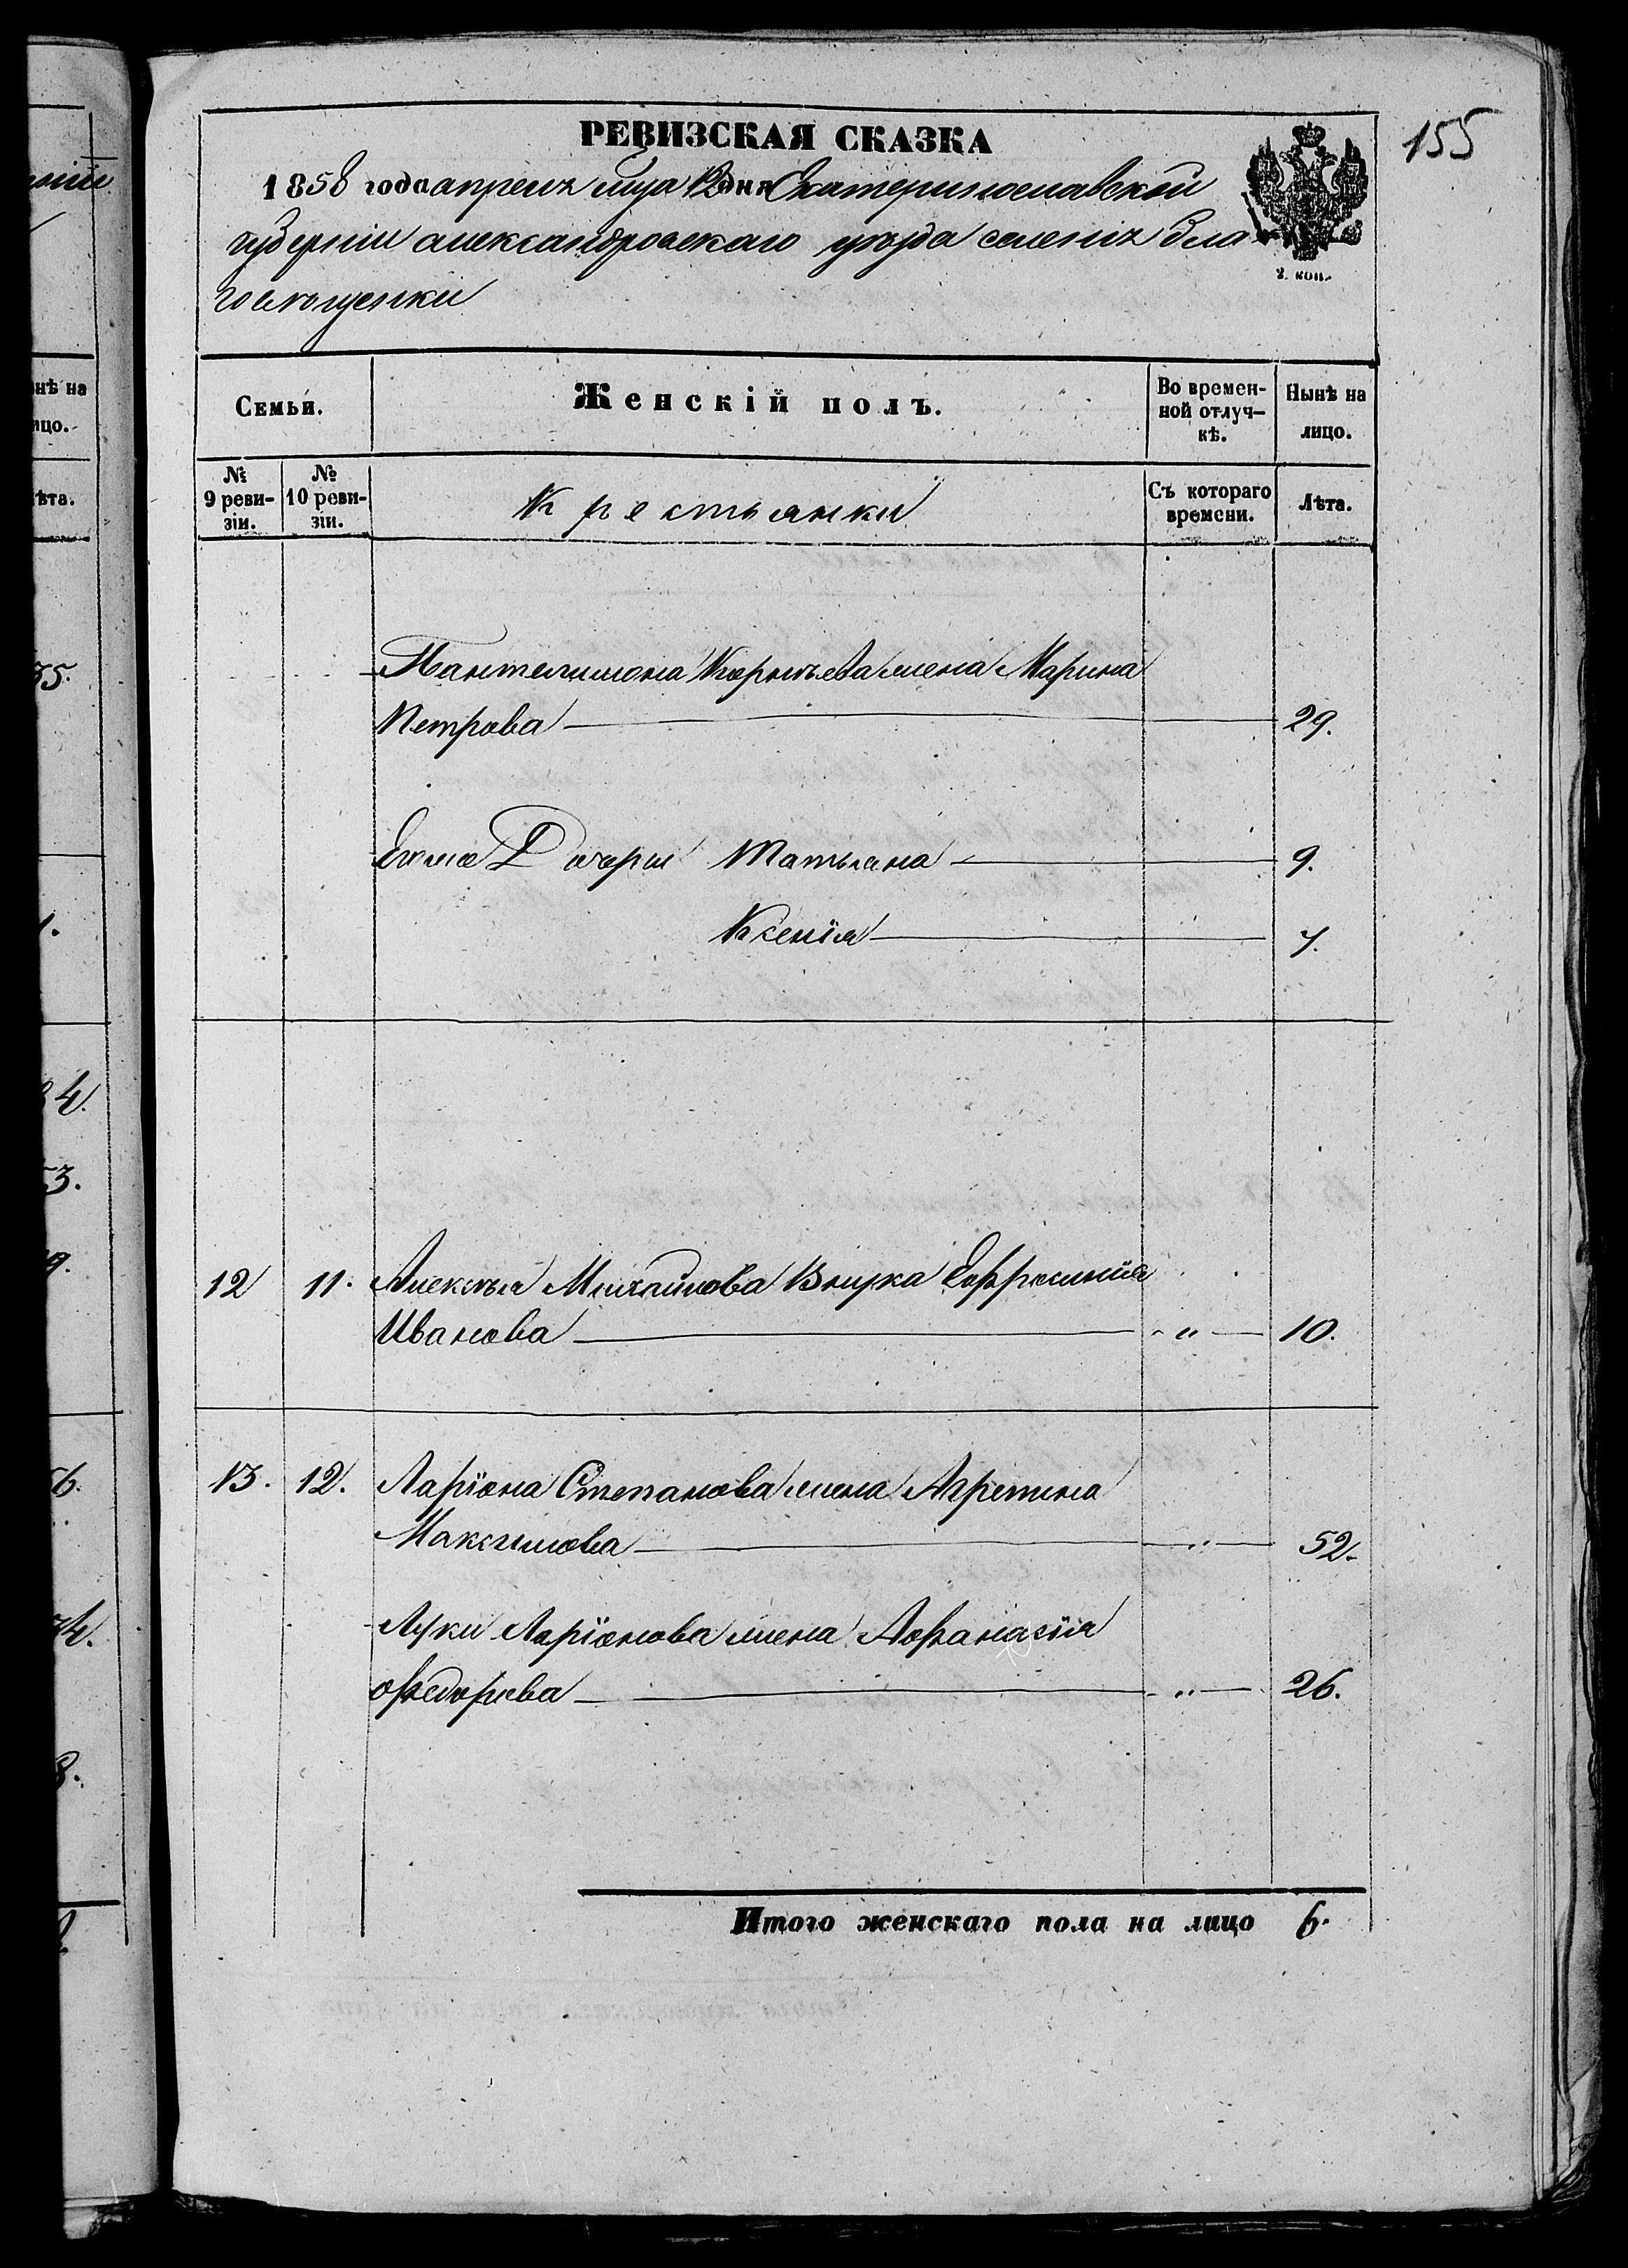 155
РЕВИЗСКАЯ СКАЗКА
1858 года апреля м҃ца 12 дня Екатеринославской
губерніи александровскаго уѣзда селенія Бла
говѣщенки
2. коп.
Семьи.
Женскій полъ.
Во времен-
ной отлуч-
кѣ.
Нынѣ на
лицо.
№
9 реви-
зіи.
№
10 реви-
зіи.
Крестьянки
Съ котораго
времени.
Лѣта.
Пантелимона Корнѣева жена Марина
Петрова 29.
Его Дочери Татьяна 9.
Ксенія 7.
12 11. Алексѣя Михайлова Внука Ефросинія
Иванова " 10.
13. 12. Ларіона Степанова жена Агрепина
Максимова " 52.
Луки Ларіонова жена Афанасія
Федорова " 26.
Итого женскаго пола на лицо 6.
нѣ на
ицо.
ѣта.
35.
1.
34.
53.
9.
56.
74.
8.